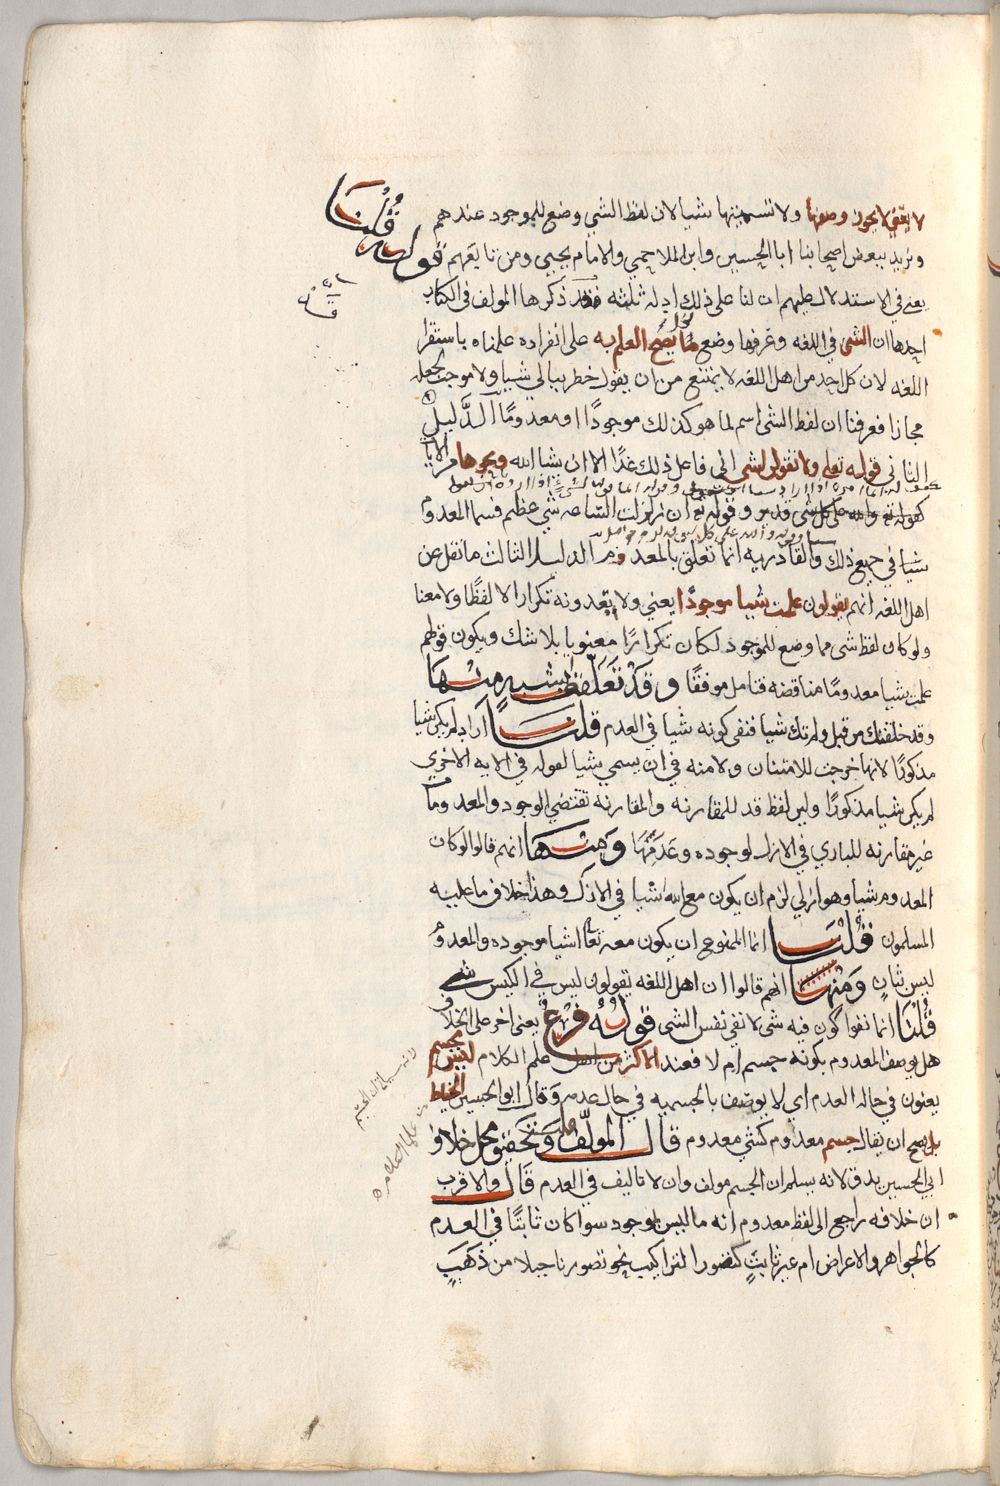 لا يعني لا يجوز وصفها ولا تسميتها شيا لان لفظ الشي وضع للموجود عندهم قلنا
ونريد ببعض اصحابنا ابا الحسين وابن الملاحمي والامام يحيى ومن تابعهم قوله
يعني في الاستدلال عليهم ان لنا على ذلك ادلة ثلثه قد ذكرها المولف في الكتاب
احدها ان الشي في اللغه وعرفها وضع لما يصح العلم به على انفراده علمناه باستقرا
اللغه لان كل احد من اهل اللغه لا يمتنع من ان يقول خطر ببالي شيا ولا موجب لجعله
مجازا فعرفنا ان لفظ الشي اسم لما هو كذلك موجودًا او معدومًا الدليل
الثاني قوله تعلى ولا تقولن لشي اني فاعل ذلك غدًا الا ان يشا الله ونحوها من الايات
كقوله تع والله على كل شي قدير وقوله تع ان زلزلت الساعه شي عظيم فسما المعدوم
شيا في جميع ذلك والقادريه انما تعلق بالمعدوم الدليل الثالث ما نقل عن
اهل اللغه انهم يقولون علمت شيا موجودًا يعني ولا يعدونه تكرارا لا لفظًا ولا معنا
ولو كان لفظ شي مما وضع للموجود لكان تكرارًا معنويا بلا شك ويكون قولهم
علمت شيا معدومًا مناقضه فتامل موفقًا وقد تعلقوا بشبه منها
وقد خلقتك من قبل ولم تك شيا فنفى كونه شيا في العدم قلنا اراد لم يكن شيا
مذكورًا لانها خرجت للامتنان ولا منه في ان يسمى شيا لقوله في الايه الاخرى
لم يكن شيا مذكورًا وليس لفظ قد للمقارنه والمقارنه تقتضي الوجود والمعدومات
غير مقارنه للباري في الازل لوجوده وعدمها ومنها انهم قالوا لو كان
المعدوم شيا وهو ازلي لزم ان يكون مع الله شيا في الازل وهذا خلاف ما عليه
المسلمون قلنا انما الممنوع ان يكون معه تعا اشيا موجوده والمعدوم
ليس بثان ومنها انهم قالوا ان اهل اللغه يقولون ليس في الكيس شي
قلنا انما نفوا كون فيه شي لا نفي نفس الشي قوله فرع يعني اخر على الخلاف
هل يوصف المعدوم بكونه جسم ام لا فعند الاكثر من اهل علم الكلام ليس بجسم
يعنون في حالة العدم اي لا يوصف بالجسميه في حال عدمه وقال ابو الحسين الخياط
بل يصح ان يقال جسم معدوم كشي معدوم قال المولف وتحقيق محل خلاف
ابي الحسين يدق لانه يسلم ان الجسم مولف وان لا تاليف في العدم قال والاقرب
ان خلافه راجع الى لفظ معدوم انه ما ليس بموجود سوا كان ثابتًا في العدم
كالجواهر والاعراض ام غير ثابت كتصور التراكيب نحو تصورنا جبلا من ذهب